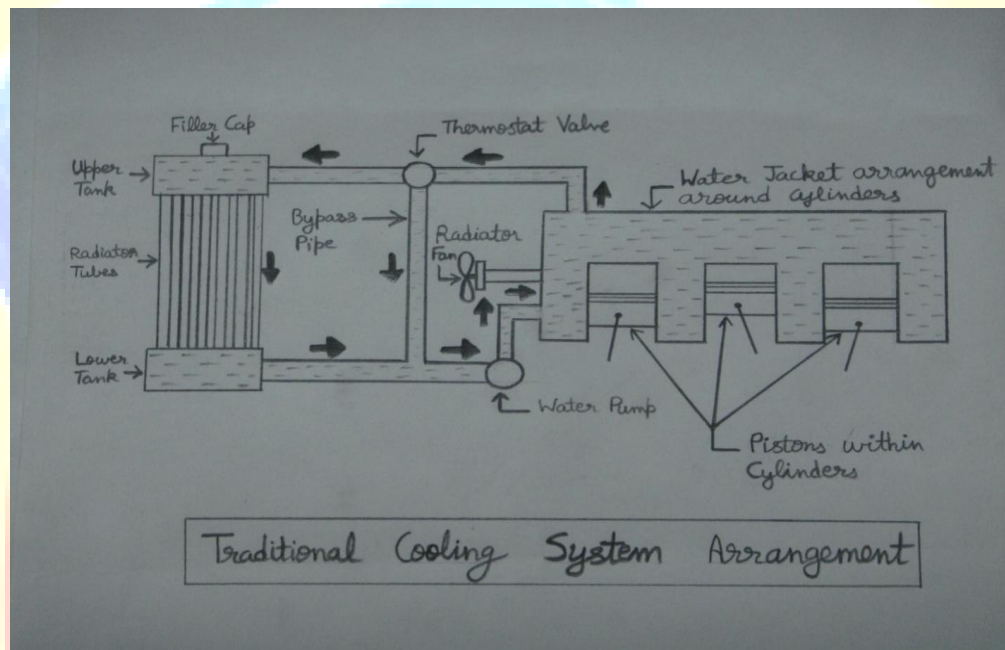 Filler Cap
Thermostat Valve
Upper
Tank
Water Jacket arrangement
around cylinders
Bypass
Pipe
Radiator
Fan
Radiator
Tubes
Lower
Tank
Water Pump
Pistons within
Cylinders
Traditional Cooling System Arrangement